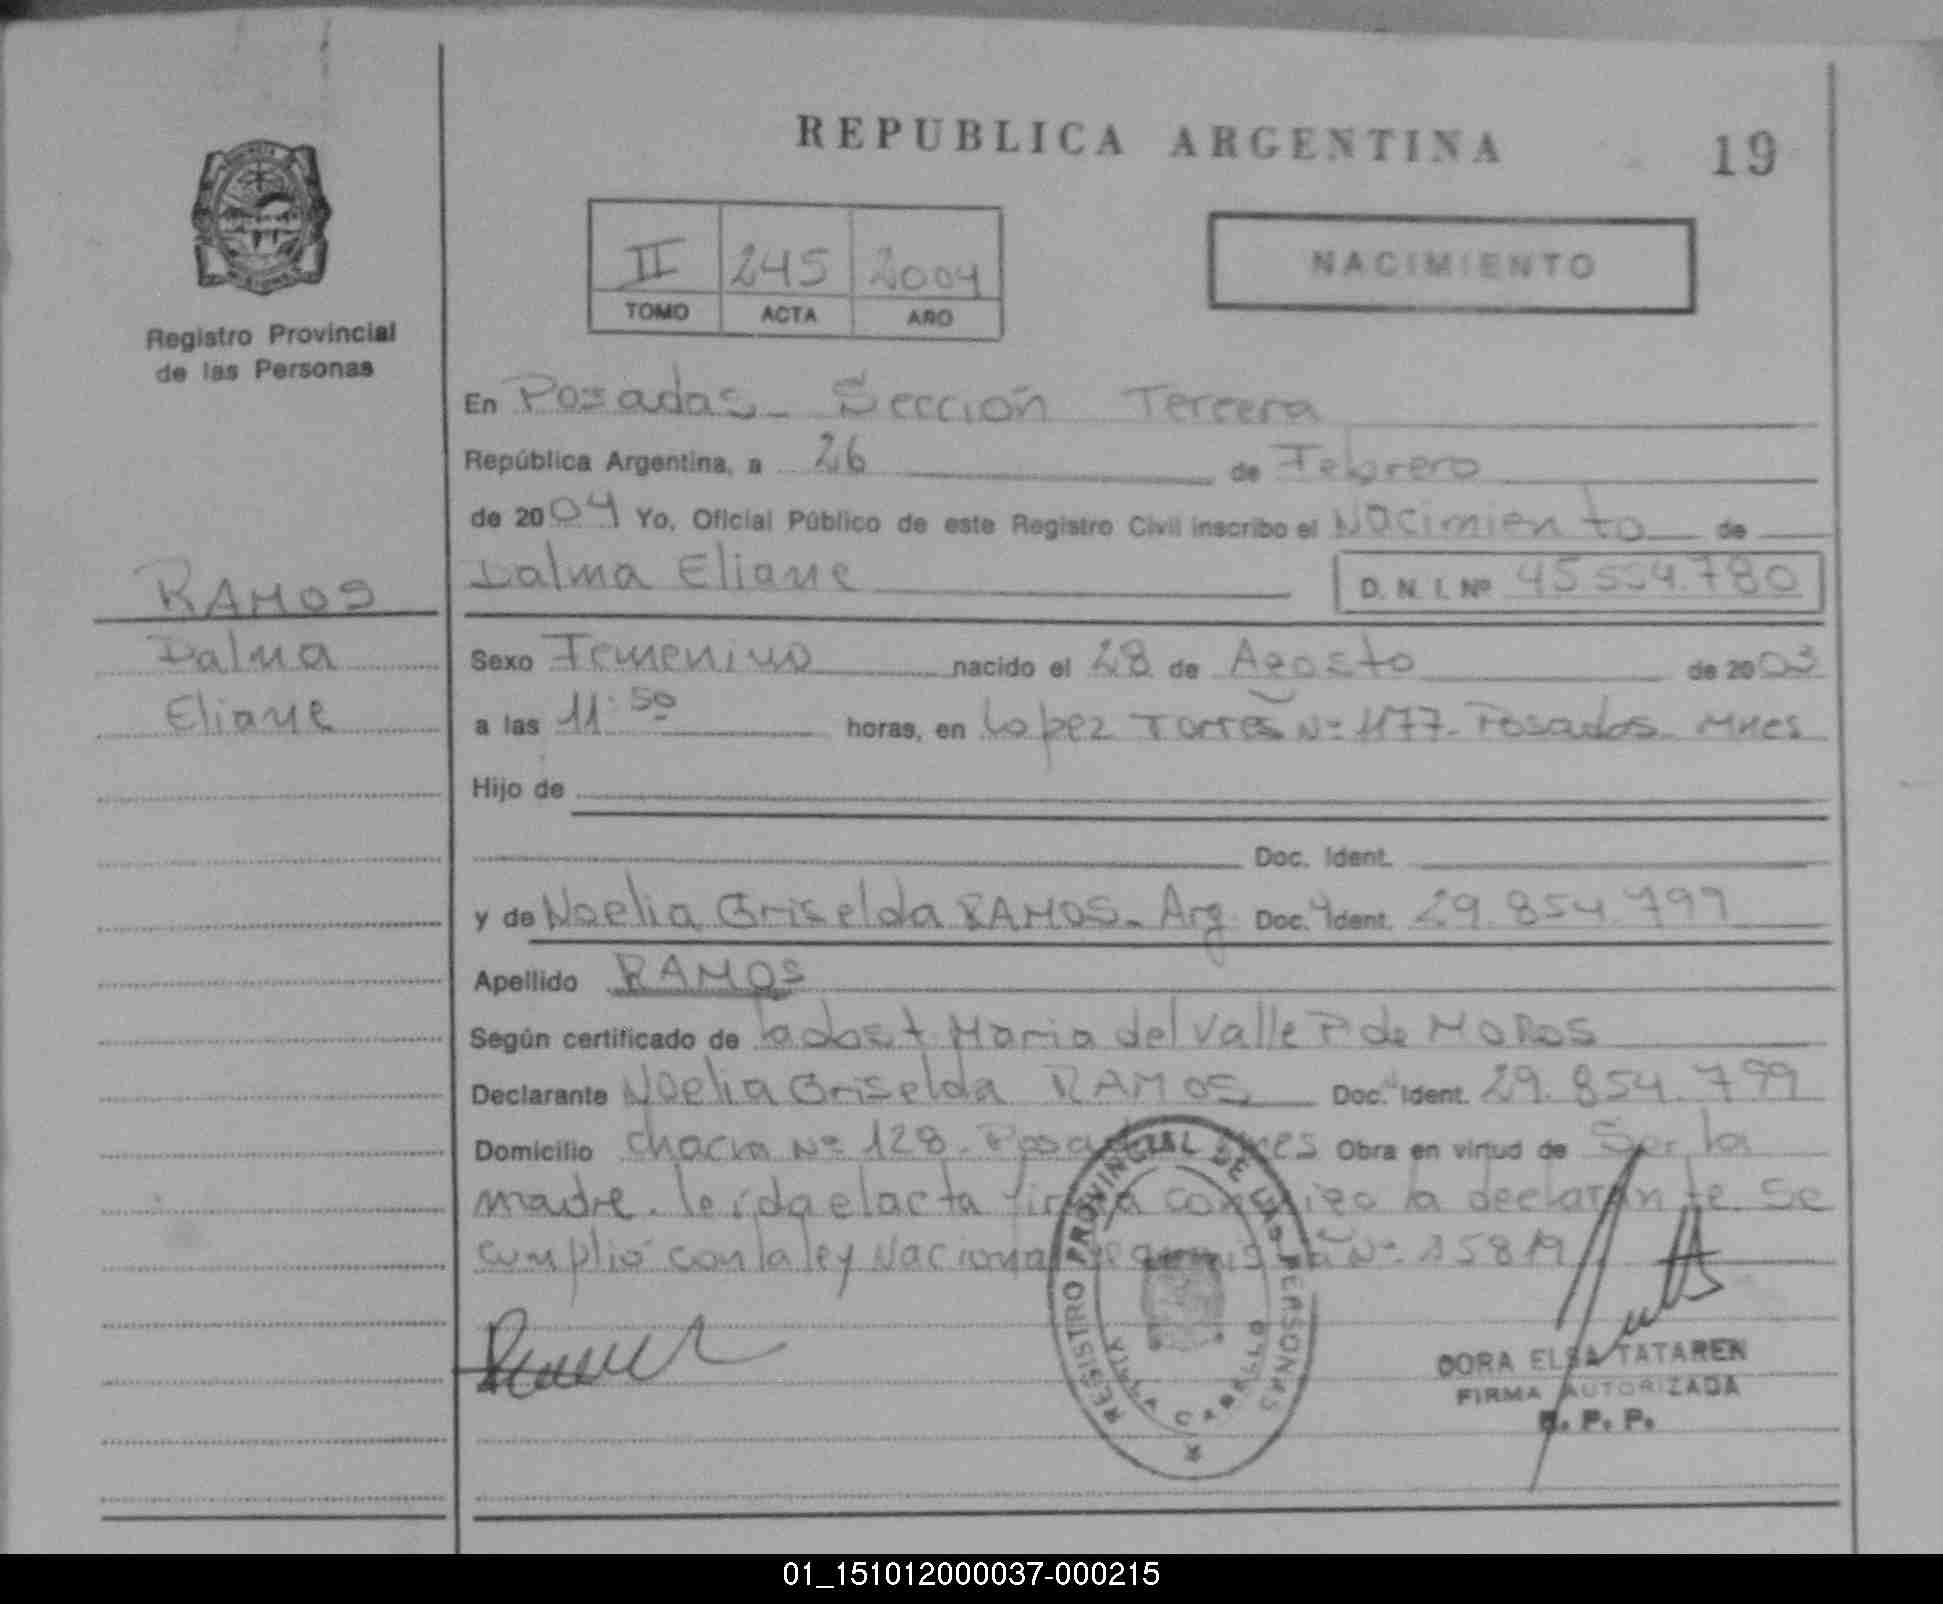 REPUBLICA ARGENTINA
19
Registro Provincial
de las Personas
II 245 2004
TOMO ACTA AÑO
NACIMIENTO
En Posadas - Sección Tercera
República Argentina, a 26 de Febrero
de 2004 Yo, Oficial Público de este Registro Civil inscribo el Nacimiento de
Dalma Eliane D. N. I. Nº 45.554.780
RAMOS
Dalma
Eliane
Sexo Femenino nacido el 28 de Agosto de 2003
a las 11:50 horas, en Lopez Torres Nº 1177 - Posadas Mnes
Hijo de
Doc. Ident.
y de Noelia Griselda RAMOS - Arg Doc. Ident. 29.854.799
Apellido RAMOS
Según certificado de la obst Maria del Valle P de MOROS
Declarante Noelia Griselda RAMOS Doc. Ident. 29.854.799
Domicilio chacra Nº 128 - Posadas Mnes Obra en virtud de Ser la
madre. leída el acta firma conmigo la declarante. Se
cumplió con la ley Nacional Nº
REGISTRO PROVINCIAL DE LAS PERSONAS
VILLA CABELLO
DORA ELSA TATAREN
FIRMA AUTORIZADA
R. P. P.
01_151012000037-000215